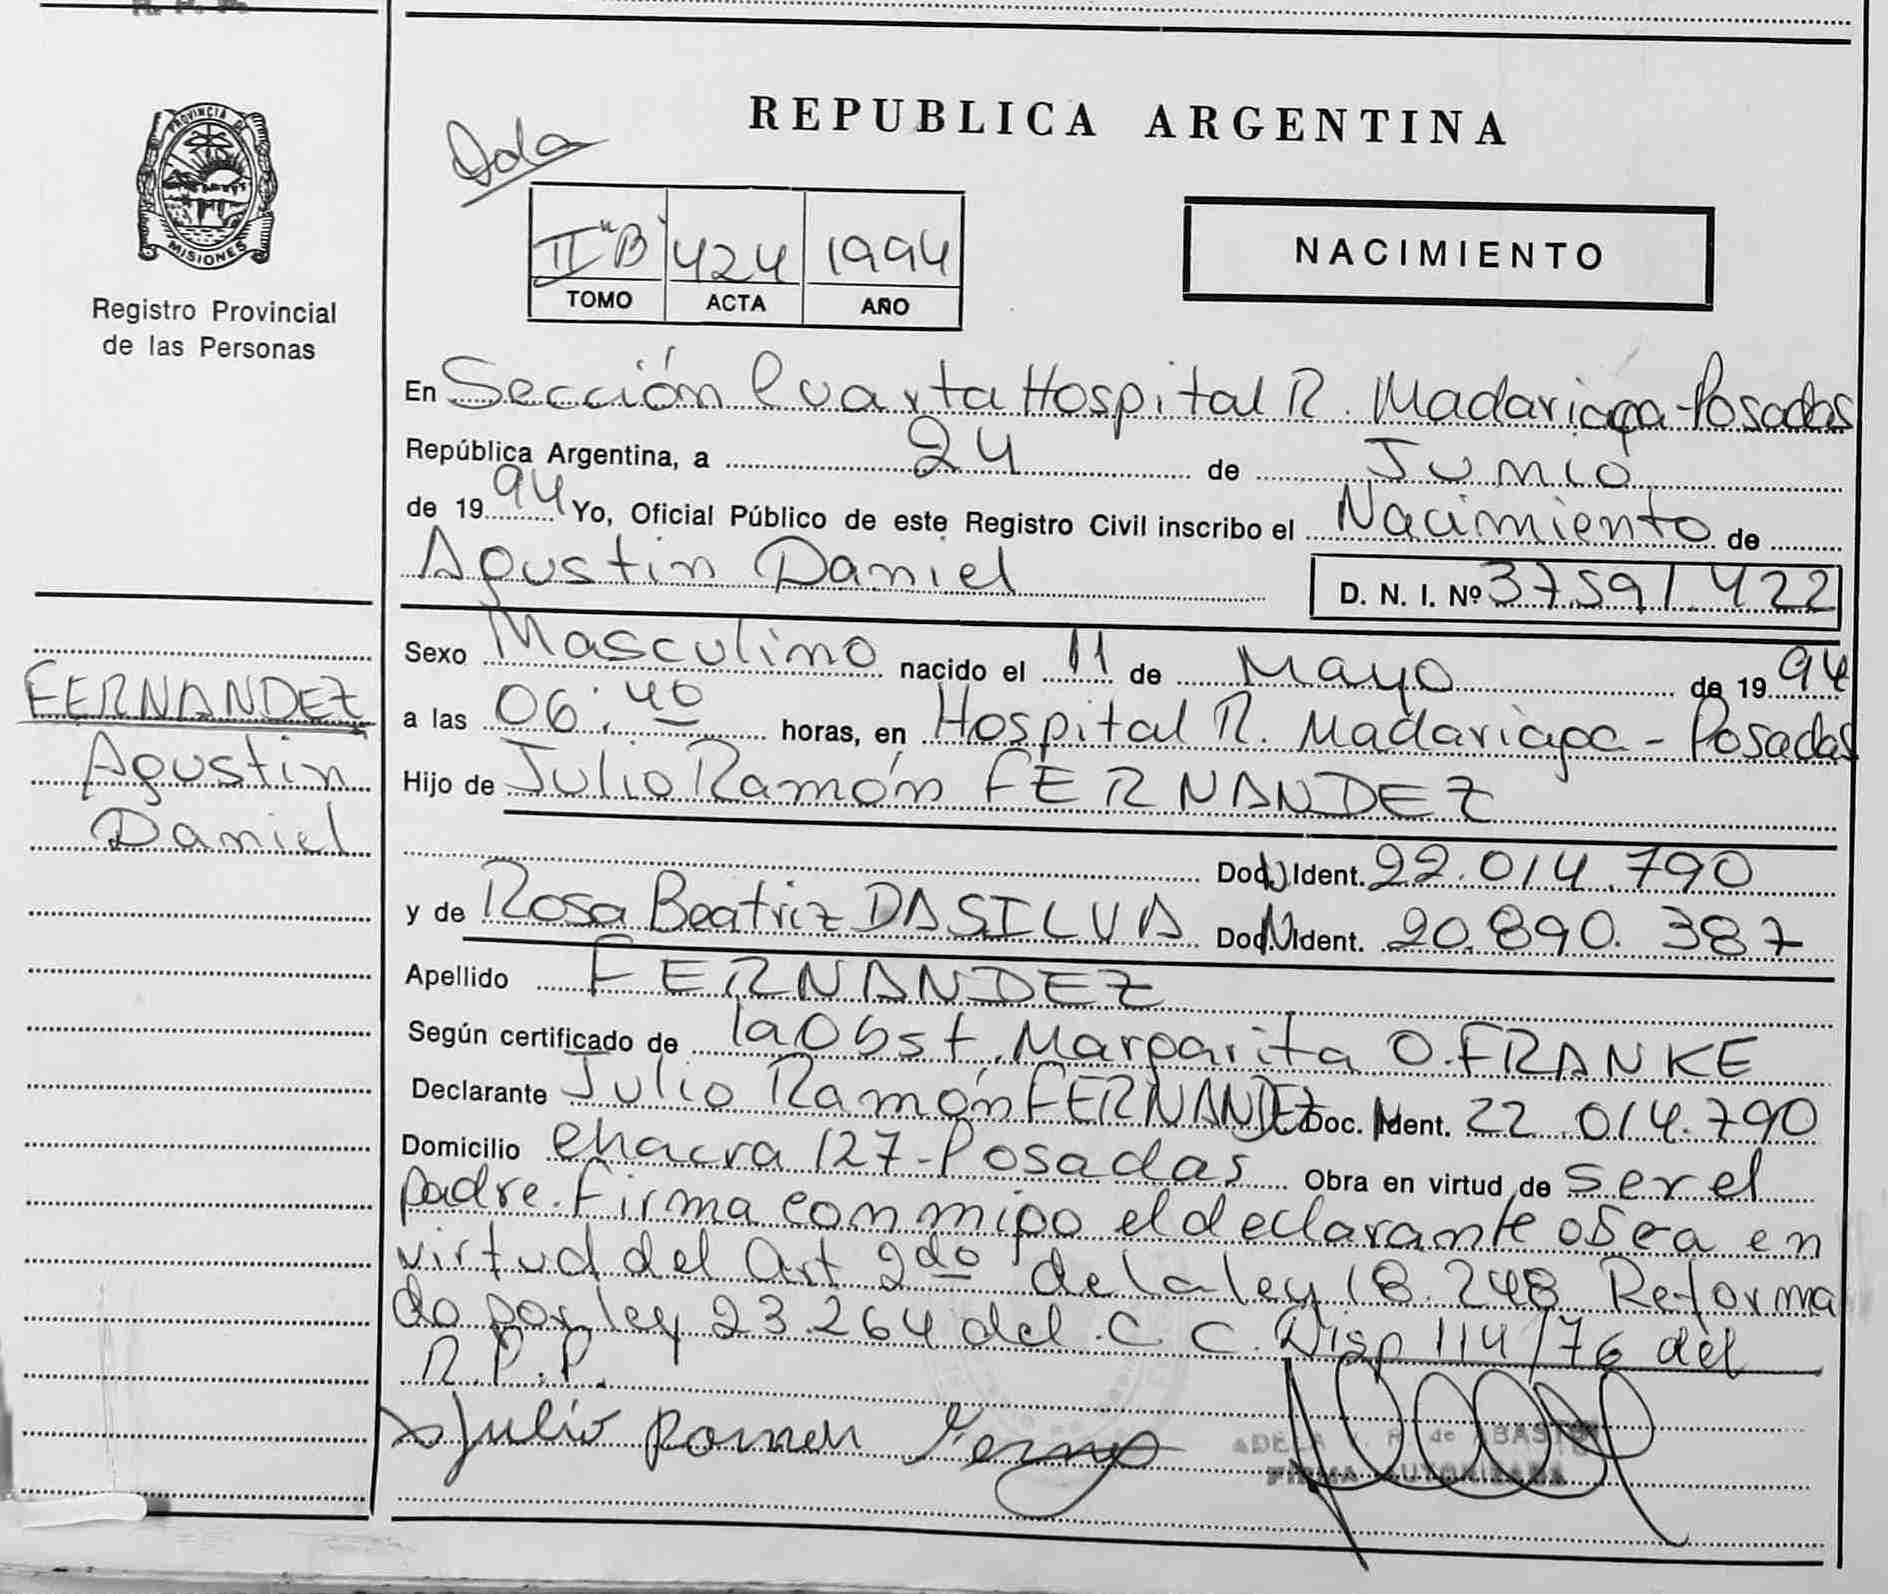 PROVINCIA DE
MISIONES
Registro Provincial
de las Personas
FERNANDEZ
Agustin
Daniel
REPUBLICA ARGENTINA
II "B" 424 1994
TOMO ACTA AÑO
NACIMIENTO
En Sección Cuarta Hospital R. Madariaga - Posadas
República Argentina, a 24 de Junio
de 1994 Yo, Oficial Público de este Registro Civil inscribo el Nacimiento de
Agustin Daniel D. N. I. Nº 37.591.422
Sexo Masculino nacido el 11 de Mayo de 1994
a las 06:40 horas, en Hospital R. Madariaga - Posadas
Hijo de Julio Ramón FERNANDEZ
Doc. Ident. 22.014.790
y de Rosa Beatriz DASILVA Doc. Ident. 20.890.387
Apellido FERNANDEZ
Según certificado de la Obst. Margarita O. FRANKE
Declarante Julio Ramón FERNANDEZ Doc. Ident. 22.014.790
Domicilio chacra 127 - Posadas Obra en virtud de ser el
padre. Firma conmigo el declarante o sea en
virtud del Art 2do de la ley 18.248 Reforma
do por ley 23.264 del C.C. Disp 114/76 del
R.P.P.
Julio Ramon
ADELA de ABASTO
FIRMA AUTORIZADA